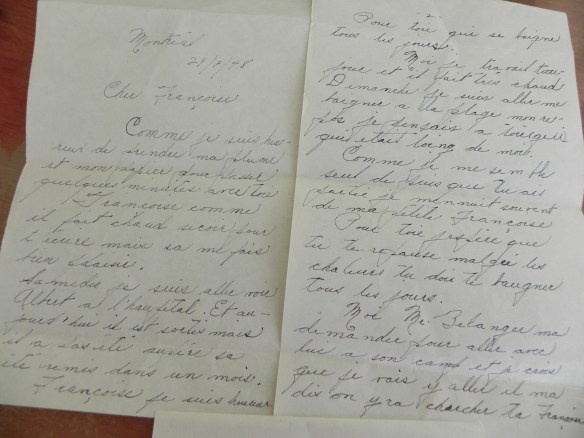 Montréal
29/7/48
Cher Françoise
Comme je suis heu-
reux de prendre ma plume
et mon papier pour passer
quelques minutes avec toi
Françoise comme
il fait chaud se soir pour
t'écrire mais sa me fais
bien plaisir.
Samedis je suis aller voir
Albert a l'haupital. Et au-
jourd'hui il est sortis mais
il a sa
été remis dans un mois.
Françoise je suis heureux
2
Pour toi qui se baigne
tous les jours.
Moi je travail tou-
jour et il fait très chaud
Dimanche je suis aller me
baigner a la plage mon re-
pos je pensais a toi qui
qui était loing de moi.
Comme je me semble
seul depuis que tu ais
partie je m'ennuit souvent
de ma petite Françoise
Pour toi j'espère que
tu te repause malgré les
chaleurs tu dois te baigner
tous les jours.
Moi Mr. Bélanger ma
demander pour aller avec
lui a son camp et je crois
que je vais y aller il ma
dis on yra chercher ta Françoise